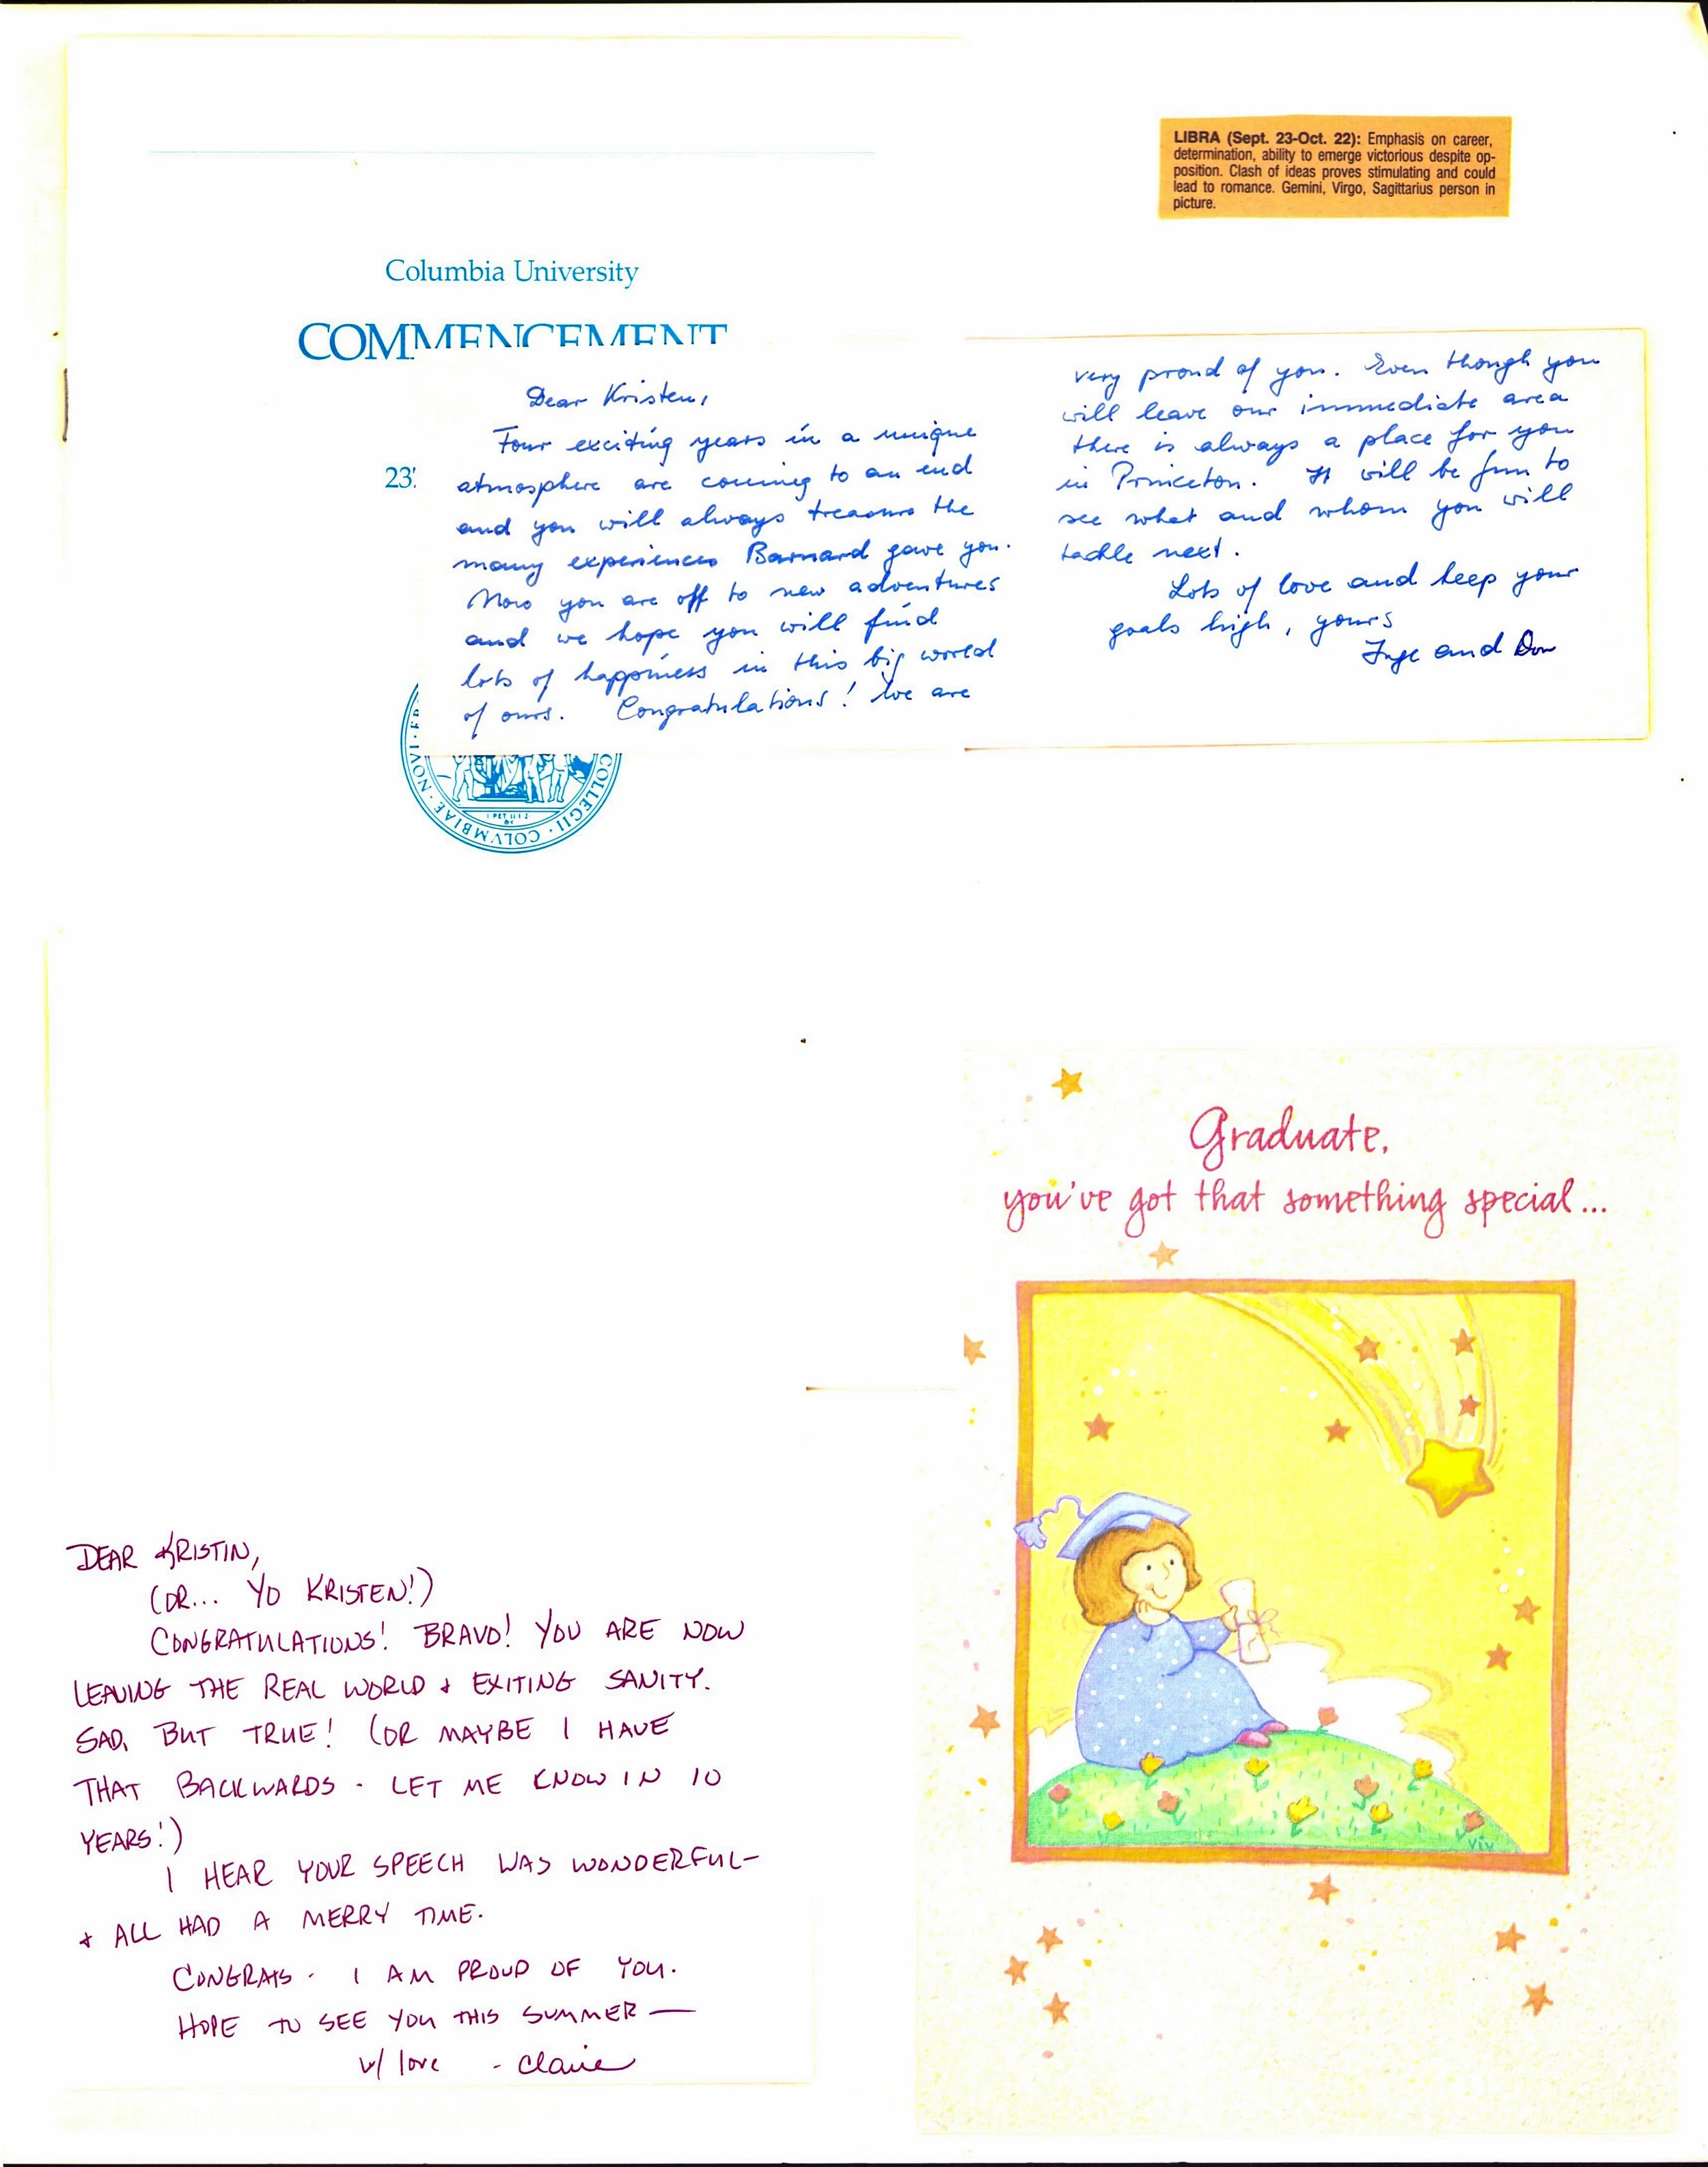 LIBRA (Sept. 23-Oct. 22): Emphasis on career,
determination, ability to emerge victorious despite op-
position. Clash of ideas proves stimulating and could
lead to romance. Gemini, Virgo, Sagittarius person in
picture.
Columbia University
COMMENCEMENT
23
Dear Kristen,
Four exciting years in a unique
atmosphere are coming to an end
and you will always treasure the
many experiences Barnard gave you.
Now you are off to new adventures
and we hope you will find
lots of happiness in this big world
of ours. Congratulations! We are
very proud of you. Even though you
will leave our immediate area
there is always a place for you
in Princeton. It will be fun to
see what and whom you will
tackle next.
Lots of love and keep your
goals high, yours
Inge and Don
COLLEGII · COLVMBIAE · NOVI ·
Graduate,
you've got that something special...
viv
DEAR KRISTIN,
(OR... YO KRISTEN!)
CONGRATULATIONS! BRAVO! YOU ARE NOW
LEAVING THE REAL WORLD + EXITING SANITY.
SAD, BUT TRUE! (OR MAYBE I HAVE
THAT BACKWARDS - LET ME KNOW IN 10
YEARS!)
I HEAR YOUR SPEECH WAS WONDERFUL-
+ ALL HAD A MERRY TIME.
CONGRATS - I AM PROUD OF YOU.
HOPE TO SEE YOU THIS SUMMER —
w/ love - Claire